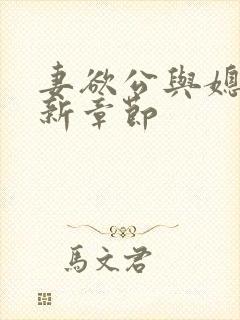 妻欲公與媳
新章節
馬文君